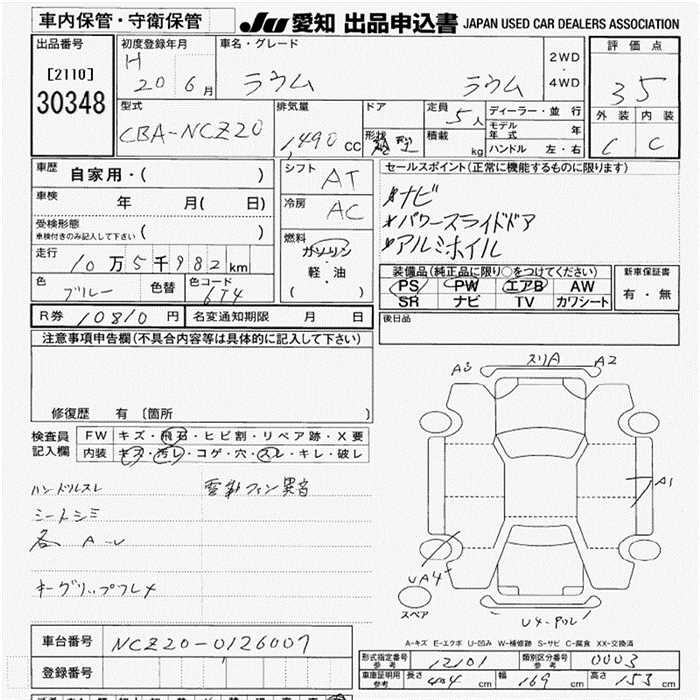 車内保管・守衛保管
JU 愛知 出品申込書 JAPAN USED CAR DEALERS ASSOCIATION
出品番号
[2110]
30348
初度登録年月
H 20 6 月
車名・グレード
ラウム ラウム
2WD
・
4WD
評価点
3 5
外装 内装
C C
型式
CBA-NCZ20
排気量
1,490 cc
ドア
形状
定員
5 人
積載
kg
ディーラー・並行
モデル年式 年
ハンドル 左・右
車歴
自家用・( )
車検
年 月( 日)
受検形態
車検付きのみ記入して下さい ( )
走行
10万5千982km
色
ブルー
色替
色コード
6T4
シフト
AT
冷房
AC
燃料
ガソリン
軽・油
( )
セールスポイント(正常に機能するものに限ります)
*ナビ
*パワースライドドア
*アルミホイル
装備品(純正品に限り○をつけてください)
PS PW エアB AW
SR ナビ TV カワシート
新車保証書
有・無
R券 10810 円
名変通知期限 月 日
後日品
注意事項申告欄(不具合内容等は具体的に記入して下さい)
修復歴 有 〔箇所 〕
検査員
記入欄
FW キズ・飛石・ヒビ割・リペア跡・X要
内装 キズ・汚レ・コゲ・穴・スレ・キレ・破レ
ハンドルスレ
電動ファン異音
シートシミ
各 A-U
キーグリップフレメ
A3 スリA A2
A1
UA4
スペア
U4-
A-キズ E-エクボ U-凹み W-補修跡 S-サビ C-腐食 XX-交換済
車台番号 NCZ20-0126007
登録番号
形式指定番号
参考
12101
類別区分番号
参考
0003
車庫証明用
参考
長さ 404 cm
幅 169 cm
高さ 153 cm